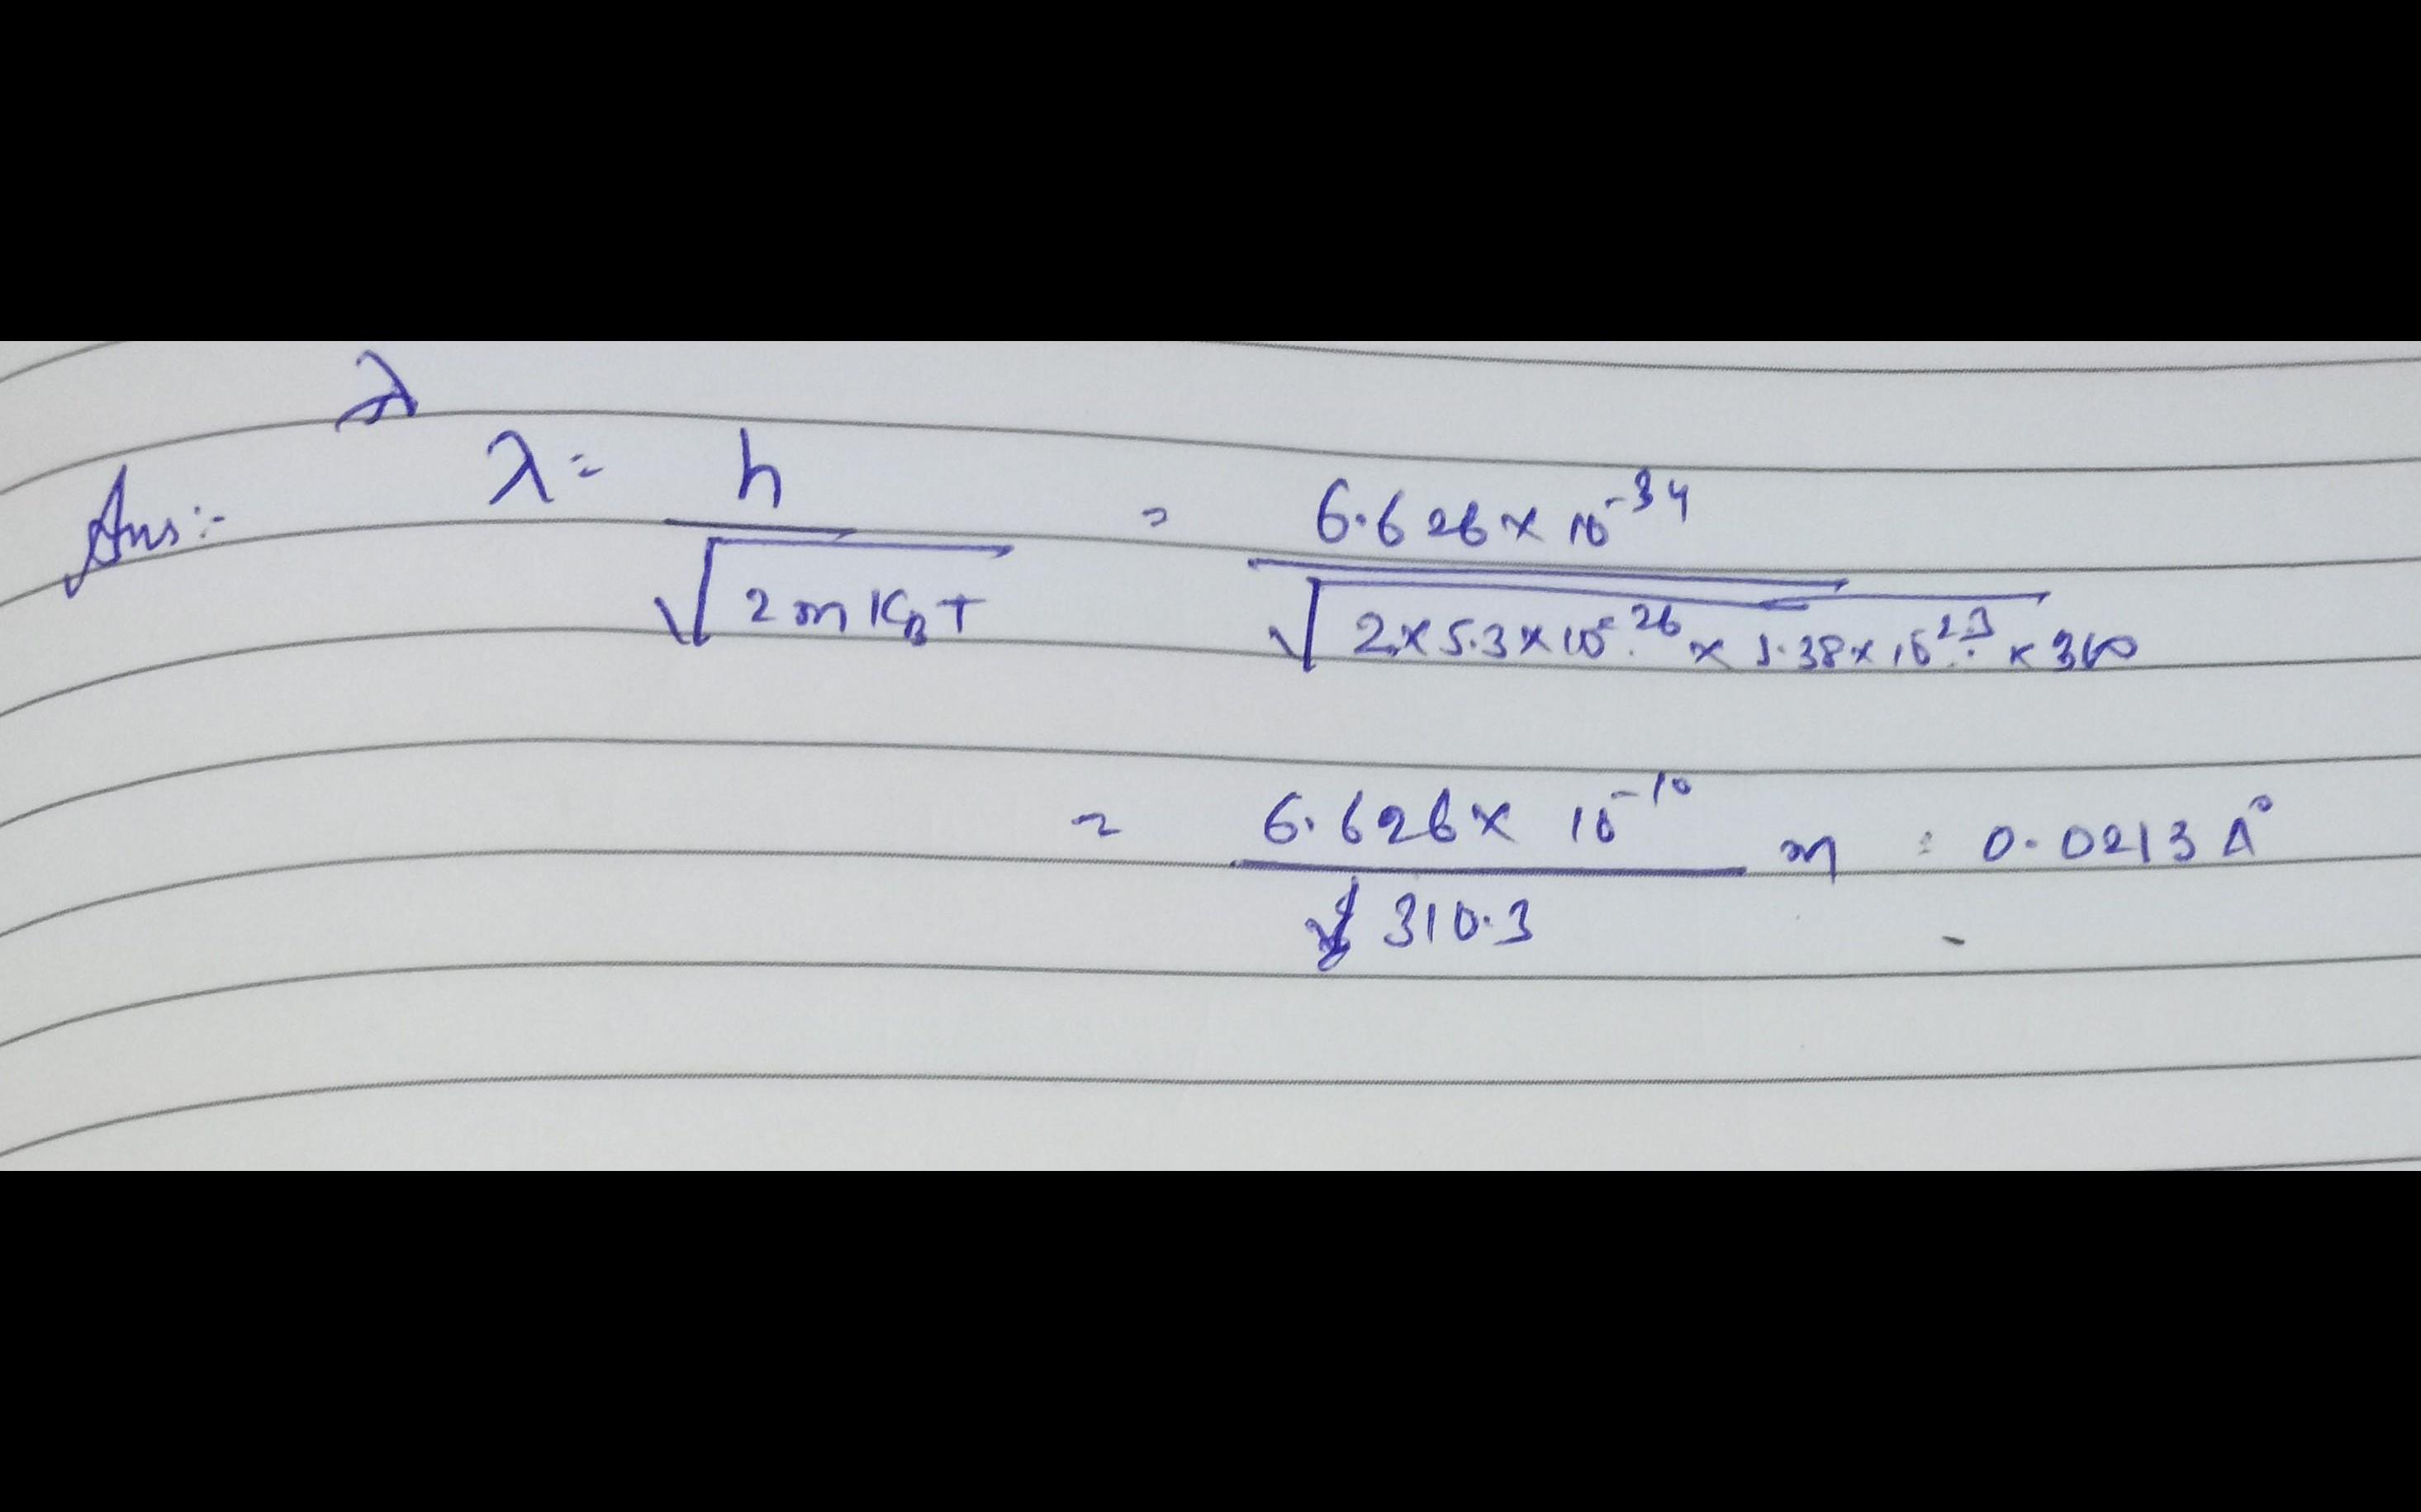 λ
Ans:- λ = h / √(2mK_BT) = 6.626 × 10^-34 / √(2 × 5.3 × 10^-26 × 1.38 × 10^-23 × 300)
= 6.626 × 10^-10 / 310.3 m = 0.0213 A°